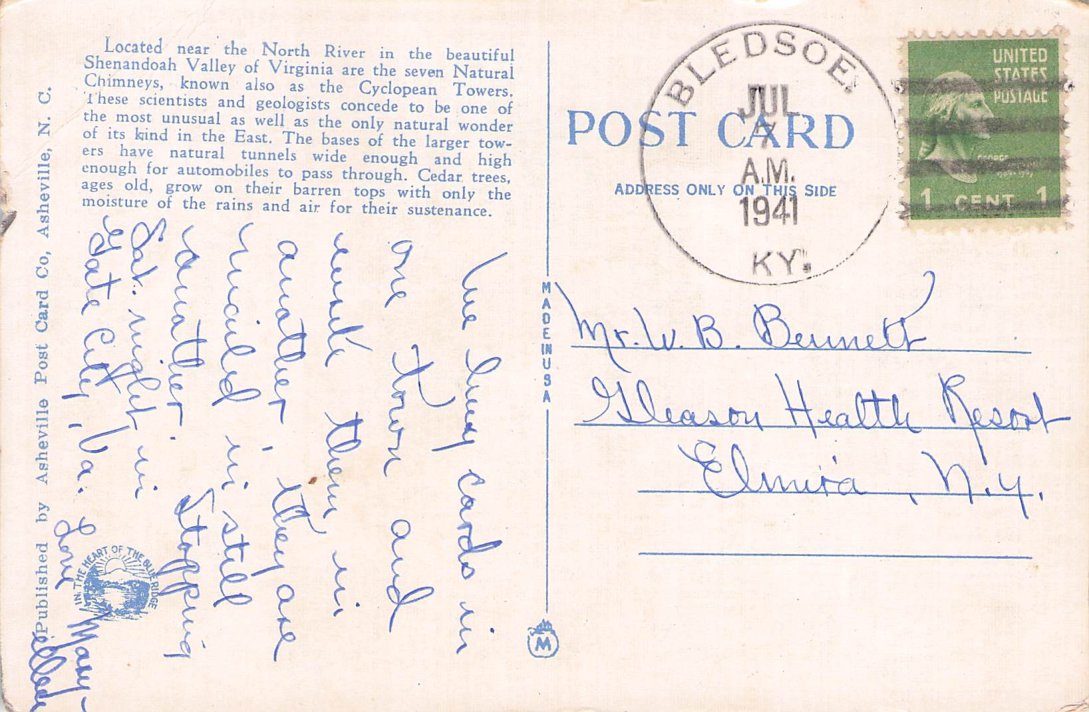 Located near the North River in the beautiful
Shenandoah Valley of Virginia are the seven Natural
Chimneys, known also as the Cyclopean Towers.
These scientists and geologists concede to be one of
the most unusual as well as the only natural wonder
of its kind in the East. The bases of the larger tow-
ers have natural tunnels wide enough and high
enough for automobiles to pass through. Cedar trees,
ages old, grow on their barren tops with only the
moisture of the rains and air for their sustenance.
Published by Asheville Post Card Co, Asheville, N. C.
IN THE HEART OF THE BLUE RIDGE
We buy cards in
one town and
write them in
another, they are
mailed in still
another. Stopping
Sat. night in
Gate City, Va.
Love Mary-
MADE IN USA
M
POST CARD
ADDRESS ONLY ON THIS SIDE
BLEDSOE.
JUL
7
A.M.
1941
KY.
UNITED
STATES
POSTAGE
GEORGE
1 CENT 1
Mr. W. B. Bennett
Gleason Health Resort
Elmira, N.Y.